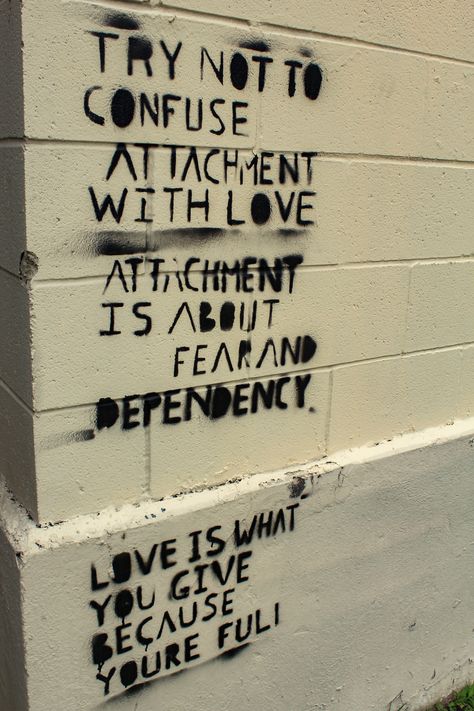 TRY NOT TO
CONFUSE
ATTACHMENT
WITH LOVE
ATTACHMENT
IS ABOUT
FEAR AND
DEPENDENCY.
LOVE IS WHAT
YOU GIVE
BECAUSE
YOURE FULL